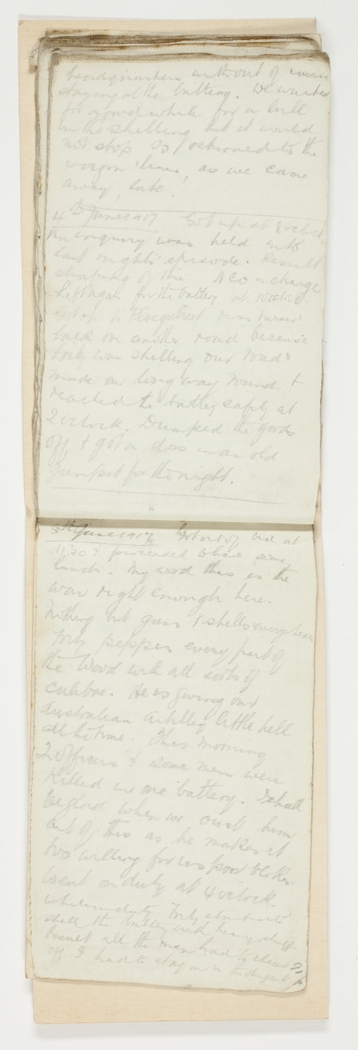 headquarters without of
staying at the battery. We waited
for a good while for a lull
in the shelling but it would
not stop so I returned to the
wagon lines, as we came
away, late.
4th June 1917 Got up at 8 oclock
An inquiry was held into
last nights episode. Result
of the NCO in charge
Left again for the battery at
got up to Ploegsteert was turned
back on another road because
Fritz was shelling our road
made our long way round &
reached the battery safely at
2 oclock. Dumped the goods
off & got a doss in an old
Gunpit for the night.
5th June 1917 Got out of bed at
11.30 & proceeded to have some
lunch. My word this is the
war right enough here.
Nothing but guns & shells everywhere
Fritz peppers every part of
the Wood with all sorts of
calibre. He is giving our
Australian Artillery little hell
all the time. This morning
2 Officers & some men were
killed in one battery. I shall
be glad when we oust him
out of this as he makes it
too willing for us poor blokes
Went on duty at 4 oclock.
whilst on duty Fritz started to
shell the battery with heavy stuff
Result all the men had to clear
off. I had to stay on in the dugout